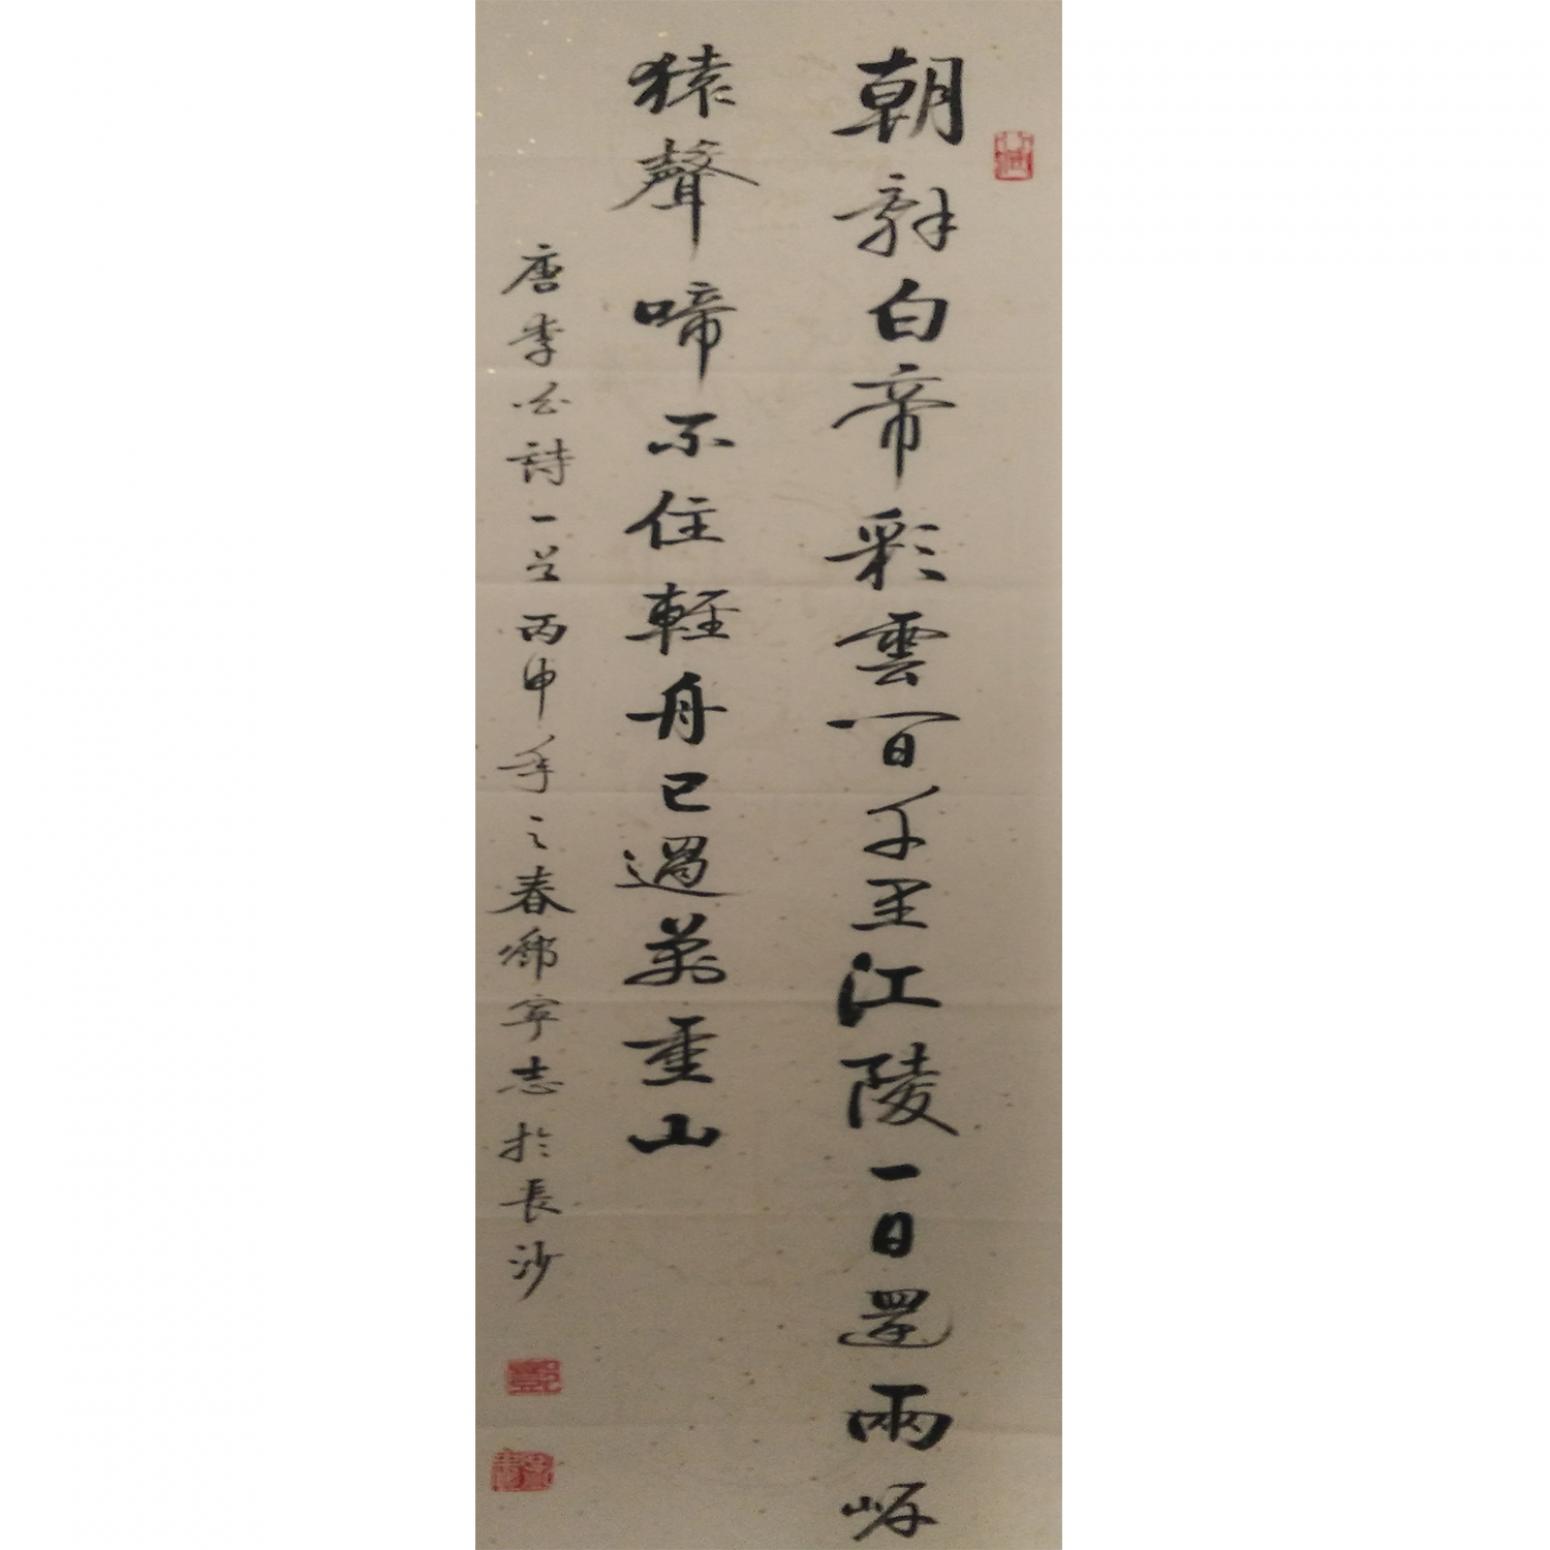 朝辭白帝彩雲間千里江陵一日還兩岸
猿聲啼不住輕舟已過萬重山
唐李白詩一首丙申年之春鄧寧志於長沙